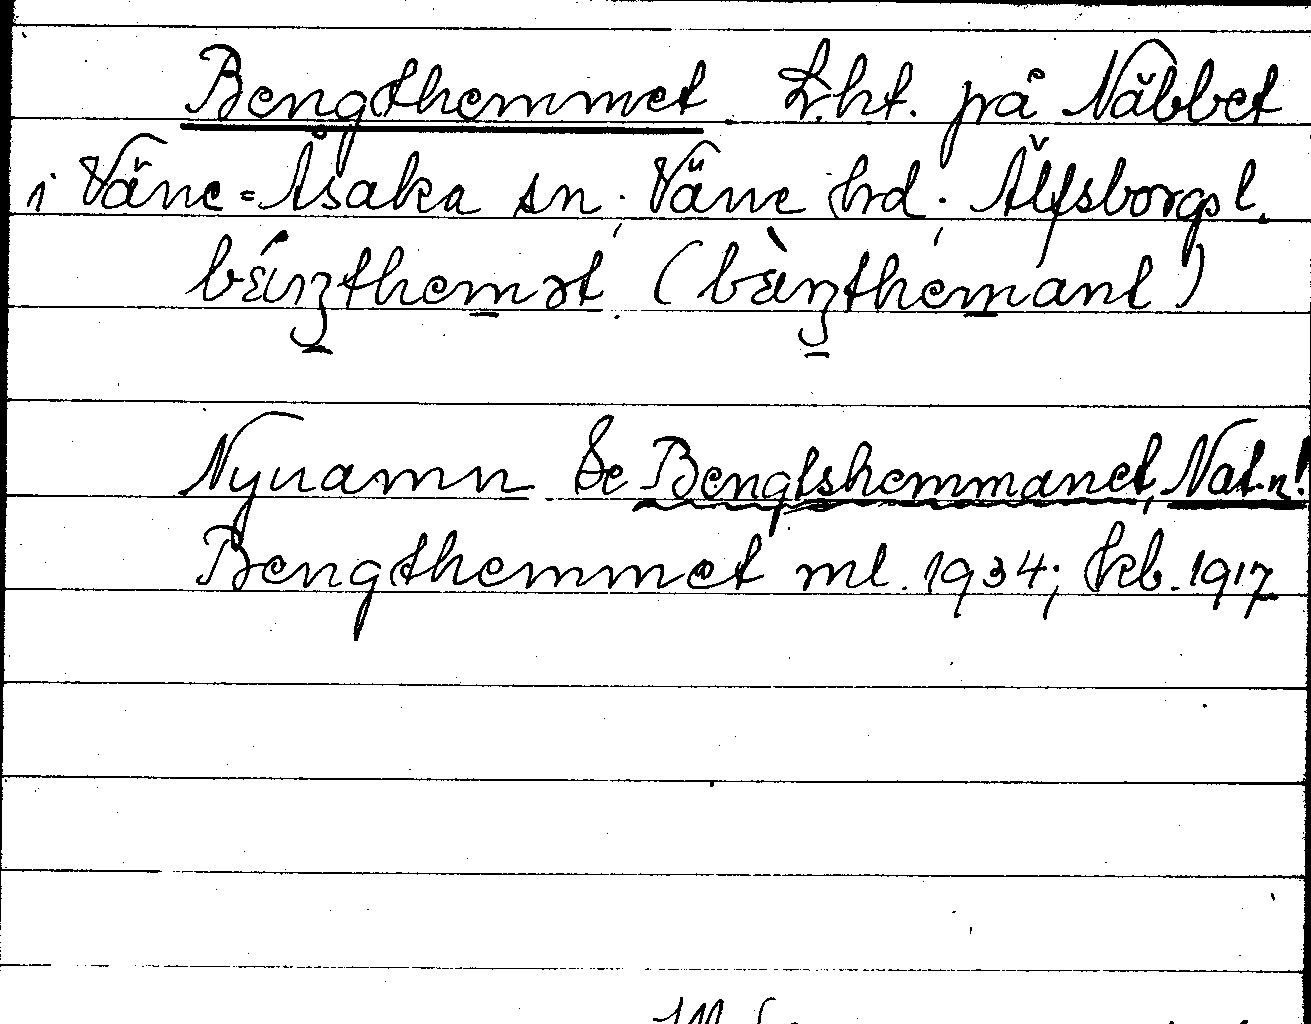 Bengthemmet. L.ht. på Näbbet
i Väne=Åsaka sn. Väne hd, Älfsborgs l.
Nynamn Se Bengtshemmanet, Nat.n!
Bengthemmet ml. 1934; kb. 1917